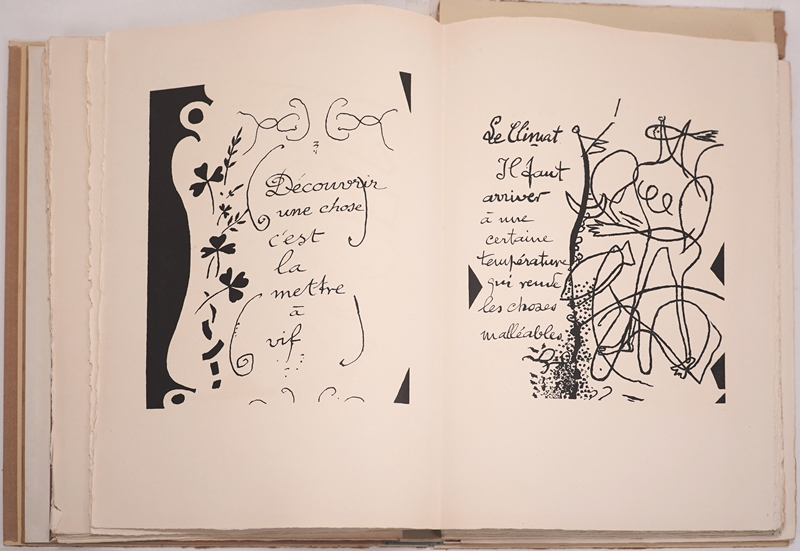 Découvrir
une chose
c'est
la
mettre
à
vif
Le Climat
Il faut
arriver
à une
certaine
température
qui rende
les choses
malléables